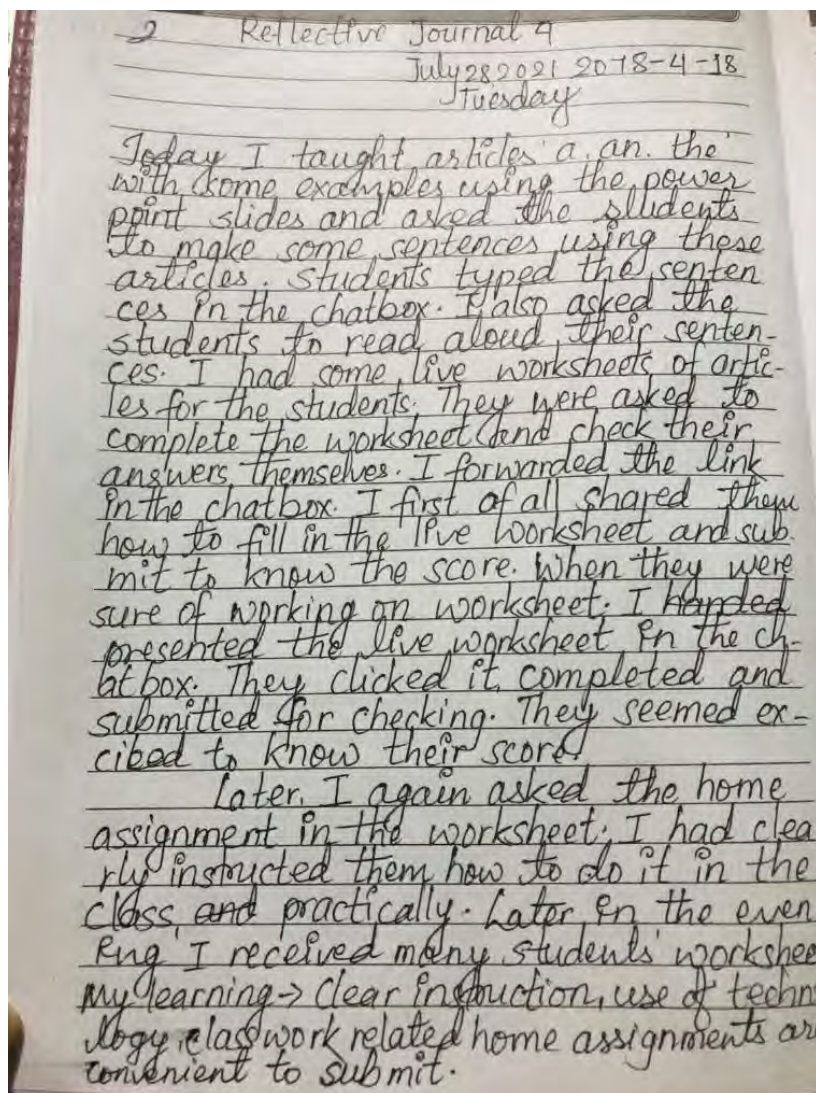 2 Reflective Journal 4
July 28 2021 2078-4-18
Tuesday
Today I taught articles 'a, an, the'
with some examples using the power
point slides and asked the students
to make some sentences using these
articles. Students typed the senten
ces in the chatbox. I also asked the
students to read aloud their senten-
ces. I had some live worksheets of artic-
les for the students. They were asked to
complete the worksheet and check their
answers themselves. I forwarded the link
in the chatbox. I first of all shared them
how to fill in the live worksheet and sub-
mit to know the score. When they were
sure of working on worksheet, I handed
presented the live worksheet in the ch-
atbox. They clicked it, completed and
submitted for checking. They seemed ex-
cibed to know their score!
Later, I again asked the home
assignment in the worksheet. I had clea
rly instructed them how to do it in the
class, and practically. Later in the even
ing I received many students' workshee
My learning → Clear instruction, use of techn
ology, classwork related home assignments are
convenient to submit.